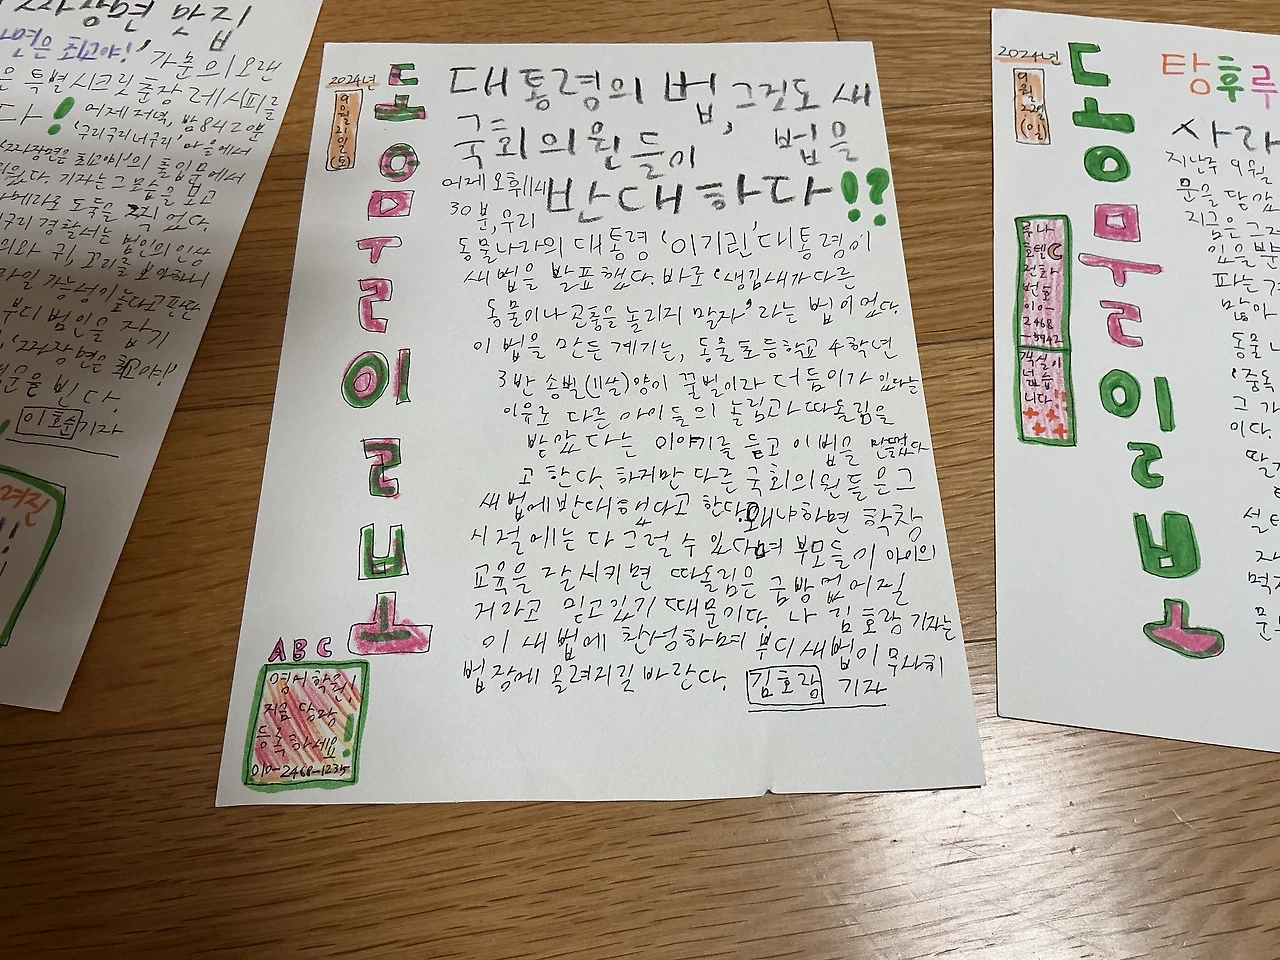 짜장면 맛집
면은 최고야!, 가 춘의 오랜
은 특별 시크릿 춘장 레시피를
다!
어제 저녁, 밤 8시 42분
'우리구리너구리' 마을에서
짜장면은 최고야!'의 출입문에서
기자는 그 모습을 보고
카메라로 도둑을 찍었다.
구리 경찰서는 범인의 인상
의와 귀, 꼬리를 보아하니
일 가능성이 높다고 판단
부디 범인을 잡기
'짜장면은 최고야!'
빈다.
이호준 기자
2024년
9월 21일 (토)
동물나라 일보
대통령의 법, 그것도 새
국회의원들이 법을
반대하다!?
어제 오후 11시
30분, 우리
동물나라의 대통령 '이기린' 대통령이
새 법을 발표했다. 바로 '생김새가 다른
동물이나 곤충을 놀리지 말자' 라는 법이었다.
이 법을 만든 계기는, 동물초등학교 4학년
3반 송벌(11살)양이 꿀벌이라 더듬이가 있다는
이유로 다른 아이들의 놀림과 따돌림을
받았다는 이야기를 듣고 이 법을 만들었다
고 한다. 하지만 다른 국회의원들은 그
새 법에 반대했다고 한다. 왜냐하면 학창
시절에는 다 그럴 수 있다며 부모들이 아이의
교육을 잘 시키면 따돌림은 금방 없어질
거라고 믿고 있기 때문이다. 나 김호랑 기자는
이 새 법에 찬성하며 부디 새 법이 무사히
법장에 올려지길 바란다. 김호랑 기자
ABC
영어학원!
지금 당장
등록하세요!
010-2468-1235
2024년
9월 22일 (일)
탕후루
루나
호텔
전화
번호
010-
2468
-3942
객실이
넓습
니다
지난주 9월
문을 닫았
지금은 그저
있을 뿐
파는
많아
동물 나
'중독
그 가
이다.